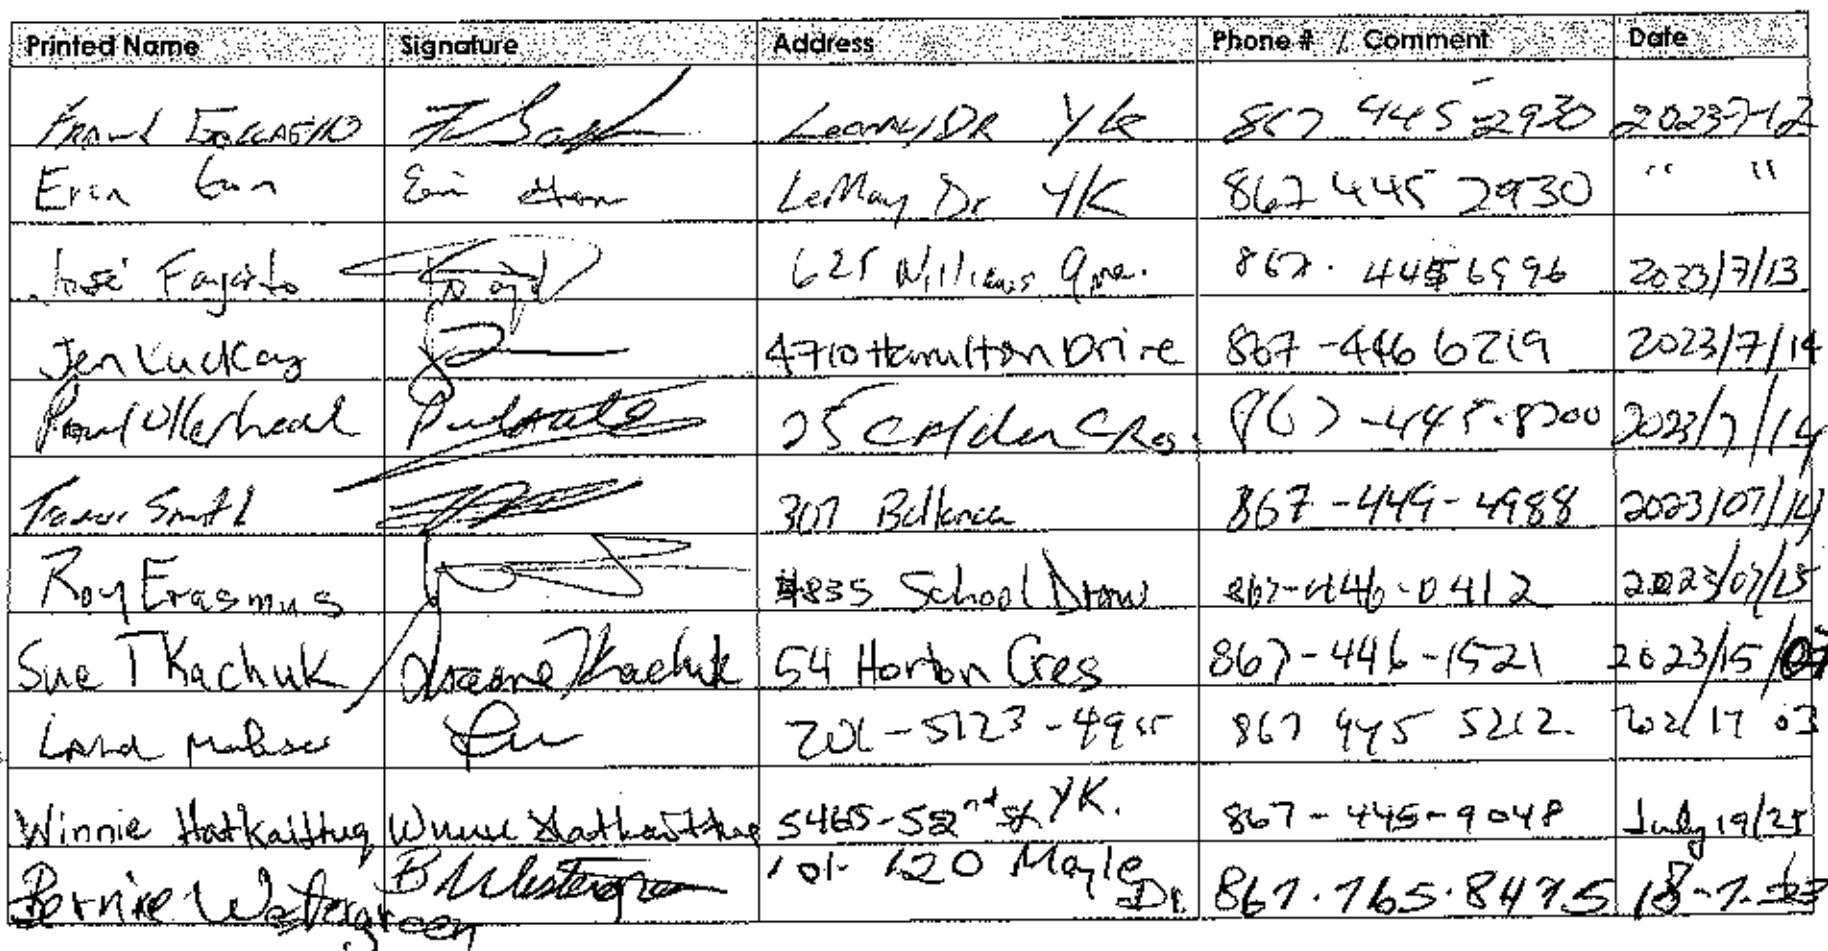 Printed Name Signature Address Phone # / Comment Date
Frank DR YK 867 445-2930 2023-7-12
Erin Erin LeMay Dr YK 867 445 2930 " "
José Fajardo 625 Williams Ave. 867. 445 6996 2023/7/13
Jen Luckay 4710 Hamilton Drive 867-446 6219 2023/7/14
Paul 25 Calder Cres. 867-445-8200 2023/7/14
Trevor Smith 307 867-449-4988 2023/07/14
Roy Erasmus 4835 School Draw 867-446-0412 2023/07/15
Sue TKachuk Tkachuk 54 Horton Cres 867-446-1521 2023/15/07
201-5123-49 867 445 5212.
Winnie Hatkaittug Winnie Hatkaittug 5465-52nd st YK. 867-445-9048 July 19/
Bernie Westergreen B Westergreen 101- 120 Moyle Dr. 867.765.8475 18-7-23